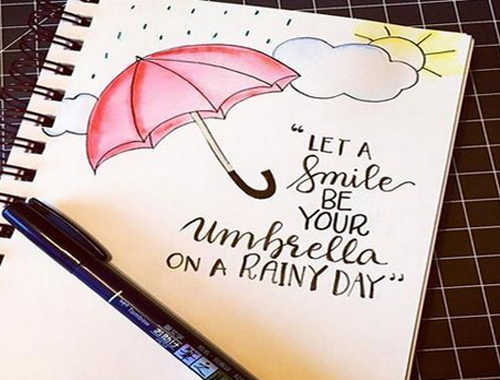 “LET A
Smile
BE
YOUR
Umbrella
ON A RAINY DAY”
Tombow